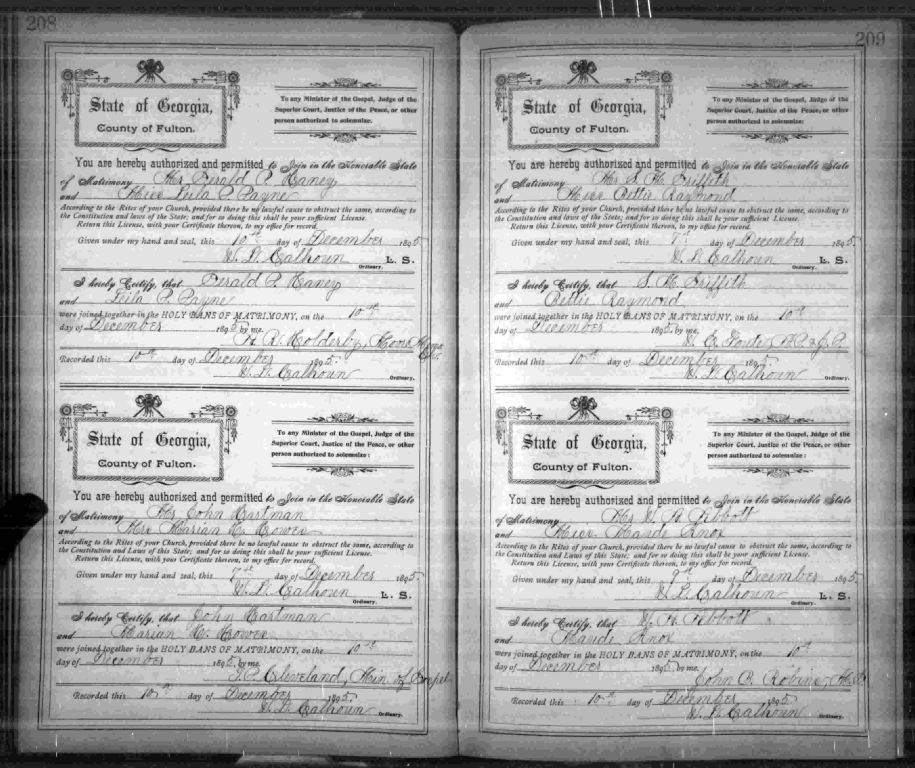 208
State of Georgia,
County of Fulton.
To any Minister of the Gospel, Judge of the
Superior Court, Justice of the Peace, or other
person authorized to solemnize:
You are hereby authorized and permitted to Join in the Honorable State
of Matrimony Mr Gerald P. Haney
and Miss Leila P. Payne
According to the Rites of your Church, provided there be no lawful cause to obstruct the same, according to
the Constitution and laws of the State; and for so doing this shall be your sufficient License.
Return this License, with your Certificate thereon, to my office for record.
Given under my hand and seal, this 10th day of December 1895.
W. L. Calhoun L. S.
Ordinary.
I hereby Certify, that Gerald P. Haney
and Leila P. Payne
were joined together in the HOLY BANS OF MATRIMONY, on the 10th
day of December 1895 by me.
A. R. Holderby,
Recorded this 10th day of December 1895.
W. L. Calhoun Ordinary.
State of Georgia,
County of Fulton.
To any Minister of the Gospel, Judge of the
Superior Court, Justice of the Peace, or other
person authorized to solemnize:
You are hereby authorized and permitted to Join in the Honorable State
of Matrimony Mr John Eastman
and Mrs Marian
According to the Rites of your Church, provided there be no lawful cause to obstruct the same, according to
the Constitution and Laws of this State; and for so doing this shall be your sufficient License.
Return this License, with your Certificate thereon, to my office for record.
Given under my hand and seal, this 7th day of December 1895.
W. L. Calhoun L. S.
Ordinary.
I hereby Certify, that John Eastman
and Marian
were joined together in the HOLY BANS OF MATRIMONY, on the 10th
day of December 1895 by me.
Cleveland, Min. of Gospel
Recorded this 10th day of December 1895.
W. L. Calhoun Ordinary.
209
State of Georgia,
County of Fulton.
To any Minister of the Gospel, Judge of the
Superior Court, Justice of the Peace, or other
person authorized to solemnize:
You are hereby authorized and permitted to Join in the Honorable State
of Matrimony Mr S. H. Griffith
and Miss Bettie Raymond
According to the Rites of your Church, provided there be no lawful cause to obstruct the same, according to
the Constitution and laws of the State; and for so doing this shall be your sufficient License.
Return this License, with your Certificate thereon, to my office for record.
Given under my hand and seal, this 7th day of December 1895.
W. L. Calhoun L. S.
Ordinary.
I hereby Certify, that S. H. Griffith
and Bettie Raymond
were joined together in the HOLY BANS OF MATRIMONY, on the 10th
day of December 1895 by me.
Foute, N.P. & J.P.
Recorded this 10th day of December 1895.
W. L. Calhoun Ordinary.
State of Georgia,
County of Fulton.
To any Minister of the Gospel, Judge of the
Superior Court, Justice of the Peace, or other
person authorized to solemnize:
You are hereby authorized and permitted to Join in the Honorable State
of Matrimony Mr W. H. Abbott
and Miss Maude Knox
According to the Rites of your Church, provided there be no lawful cause to obstruct the same, according to
the Constitution and Laws of this State; and for so doing this shall be your sufficient License.
Return this License, with your Certificate thereon, to my office for record.
Given under my hand and seal, this 9th day of December 1895.
W. L. Calhoun L. S.
Ordinary.
I hereby Certify, that W. H. Abbott
and Maude Knox
were joined together in the HOLY BANS OF MATRIMONY, on the 10th
day of December 1895 by me.
John B. Robins,
Recorded this 10th day of December 1895.
W. L. Calhoun Ordinary.